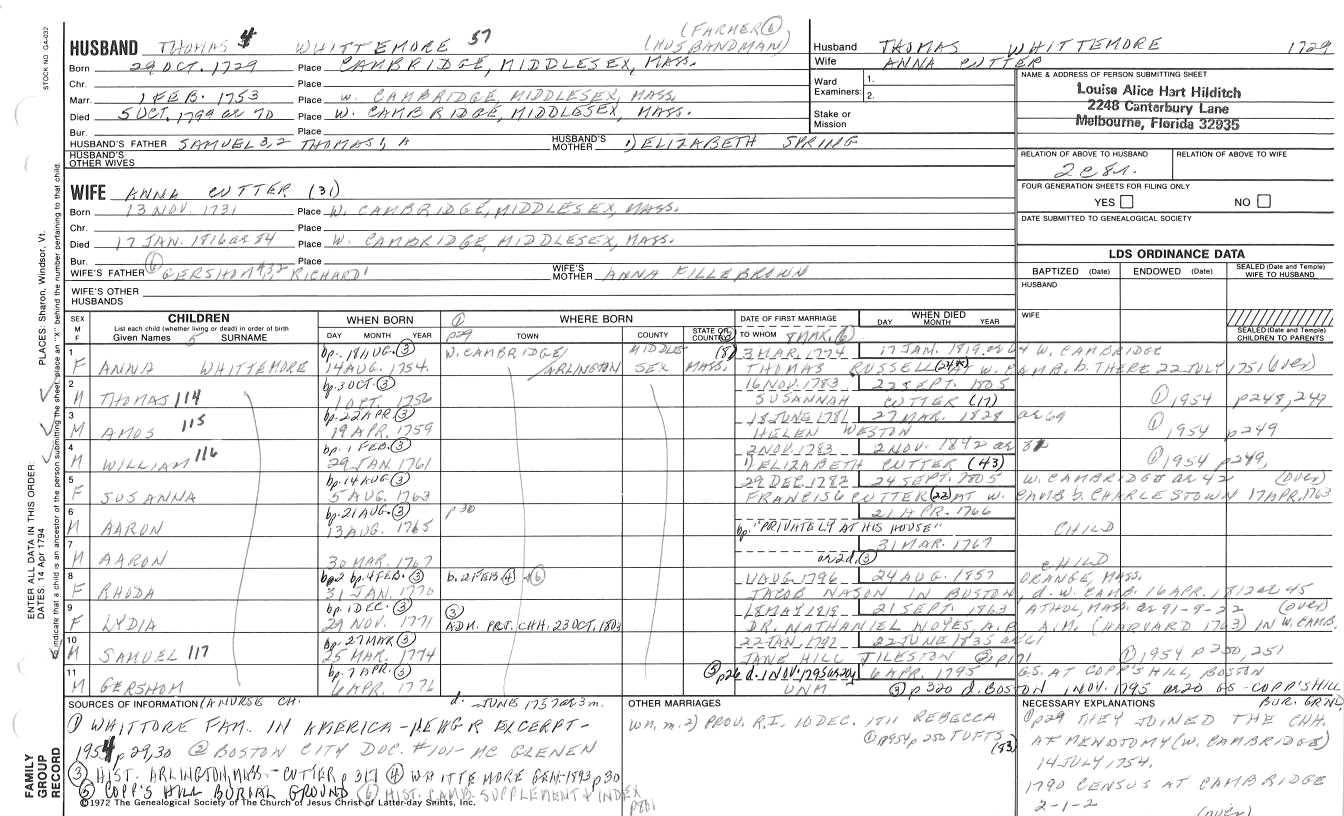 STOCK NO. GA-032
HUSBAND THOMAS 4 WHITTEMORE 57 (FARMER ⑥ (HUSBANDMAN)
Born 29 OCT. 1729 Place CAMBRIDGE, MIDDLESEX, MASS.
Chr. Place
Marr. 1 FEB. 1753 Place W. CAMBRIDGE MIDDLESEX, MASS.
Died 5 OCT. 1799 ae 70 Place W. CAMBRIDGE, MIDDLESEX, MASS.
Bur. Place
HUSBAND'S FATHER SAMUEL 3, 2 THOMAS 1, A HUSBAND'S MOTHER 1) ELIZABETH SPRING
HUSBAND'S OTHER WIVES
Husband THOMAS WHITTEMORE 1729
Wife ANNA CUTTER
Ward Examiners: 1.
2.
Stake or Mission
NAME & ADDRESS OF PERSON SUBMITTING SHEET
Louise Alice Hart Hilditch
2248 Canterbury Lane
Melbourne, Florida 32935
RELATION OF ABOVE TO HUSBAND RELATION OF ABOVE TO WIFE
2C8R.
FOUR GENERATION SHEETS FOR FILING ONLY
YES NO
DATE SUBMITTED TO GENEALOGICAL SOCIETY
WIFE ANNA CUTTER (31)
Born 13 NOV. 1731 Place W. CAMBRIDGE, MIDDLESEX, MASS.
Chr. Place
Died 17 JAN. 1816 ae 84 Place W. CAMBRIDGE, MIDDLESEX, MASS.
Bur. ⑥ Place
WIFE'S FATHER GERSHOM RICHARD 1 WIFE'S MOTHER ANNA FILLEBROWN
WIFE'S OTHER HUSBANDS
LDS ORDINANCE DATA
BAPTIZED (Date) ENDOWED (Date) SEALED (Date and Temple) WIFE TO HUSBAND
HUSBAND
WIFE
SEALED (Date and Temple) CHILDREN TO PARENTS
SEX M F CHILDREN List each child (whether living or dead) in order of birth Given Names 5 SURNAME
WHEN BORN DAY MONTH YEAR
WHERE BORN ① p29 TOWN COUNTY STATE OR COUNTRY
DATE OF FIRST MARRIAGE TO WHOM 8 MAR. ⑥
WHEN DIED DAY MONTH YEAR
1 F ANNA WHITTEMORE bp. 18 AUG. ③ 14 AUG. 1754. W. CAMBRIDGE/ /ARLINGTON MIDDLE SEX MASS. (8) 3 MAR. 1774 17 JAN. 1819. ae 64 W. CAMBRIDGE
THOMAS RUSSELL AT W. CAMB. b. THERE 22 JULY 1751 (over)
2 M THOMAS 114 bp. 3 OCT. ③ 1 OCT. 1756 16 NOV. 1783 22 SEPT. 1805
SUSANNAH CUTTER (17) ① 1954 p248, 249
3 M AMOS 115 bp. 22 APR ③ 19 APR. 1759 18 JUNE 1781 27 MAR. 1828 ae 69
HELEN WESTON ① 1954 p249
4 M WILLIAM 116 bp. 1 FEB. ③ 29 JAN. 1761 2 NOV. 1783 2 NOV. 1842 ae 81
1) ELIZABETH CUTTER (43) ① 1954 p249,
5 F SUSANNA bp. 14 AUG ③ 5 AUG. 1763 29 DEC. 1782 24 SEPT. 1805 W. CAMBRIDGE ae 42 (over)
FRANCIS CUTTER (22) AT W. CAMB b. CHARLESTOWN 17 APR, 1763
6 M AARON bp. 21 AUG. ③ 13 AUG. 1765 p30 21 APR. 1766
bp. "PRIVATELY AT HIS HOUSE" CHILD
7 M AARON 30 MAR. 1767 31 MAR. 1767
ae 2d. ③ CHILD
8 F RHODA bp. 4 FEB. ③ 31 JAN. 1770 b. 2 FEB ④ ⑥ 4 AUG. 1796 24 AUG. 1857 ORANGE, MASS.
JACOB NASON IN BOSTON, d. W. CAMB. 16 APR. 1812 ae 45
9 F LYDIA bp. 1 DEC. ③ 29 NOV. 1771 ③ ADM. PRT. CHH. 23 OCT. 1803 18 MAY 1818 21 SEPT. 1863 ATHOL, MASS. ae 91-9-22 (over)
DR. NATHANIEL NOYES A.B A.M. (HARVARD 1763) IN W. CAMB.
10 M SAMUEL 117 bp. 27 MAR ③ 25 MAR. 1774 22 JAN. 1797 22 JUNE 1835 ae 61
JANE HILL TILESTON ② p171 ① 1954 p250, 251
11 M GERSHOM bp. 7 APR. ③ 6 APR. 1776 ③ p26 d. 1 NOV. 1795 ae 20y 6 APR. 1795 GS. AT COPP'S HILL, BOSTON
UNM ③ p320 d. BOSTON 1 NOV. 1795 ae 20 GS - COPP'S HILL BUR. GRND.
SOURCES OF INFORMATION (A NURSE CH. d. JUNE 1757 ae 3m.
① WHITTORE FAM. IN AMERICA - NEHGR EXCERPT-
1954 p 29, 30 ② BOSTON CITY DOC. #101- MC GLENEN
③ HIST. ARLINGTON, MASS. - CUTTER p 317 ④ WHITTEMORE GEN-1893 p30
⑤ COPP'S HILL BURIAL GROUND ⑥ HIST. CAMB. SUPPLEMENT & INDEX p801
©1972 The Genealogical Society of The Church of Jesus Christ of Latter-day Saints, Inc.
OTHER MARRIAGES
WM. m. 2) PROV. R.I. 10 DEC. 1811 REBECCA
① 1954 p250 TUFTS (83)
NECESSARY EXPLANATIONS
① p29 THEY JOINED THE CHH.
AT MENOTOMY (W. CAMBRIDGE)
14 JULY 1754.
1790 CENSUS AT CAMBRIDGE
2-1-2
(over)
FAMILY GROUP RECORD
ENTER ALL DATA IN THIS ORDER:
DATES: 14 Apr 1794
PLACES: Sharon, Windsor, Vt.
To indicate that a child is an ancestor of the person submitting the sheet, place an "X" behind the number pertaining to that child.